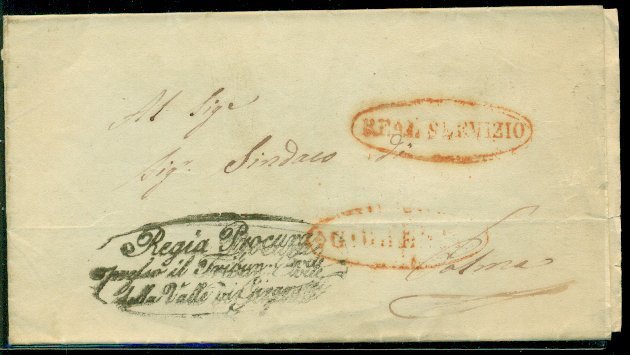 Al Sig.e
REAL SERVIZIO
Sig.r Sindaco di
Palma
Regia Procura
presso il Tribun. Civile
della Valle di Girgenti